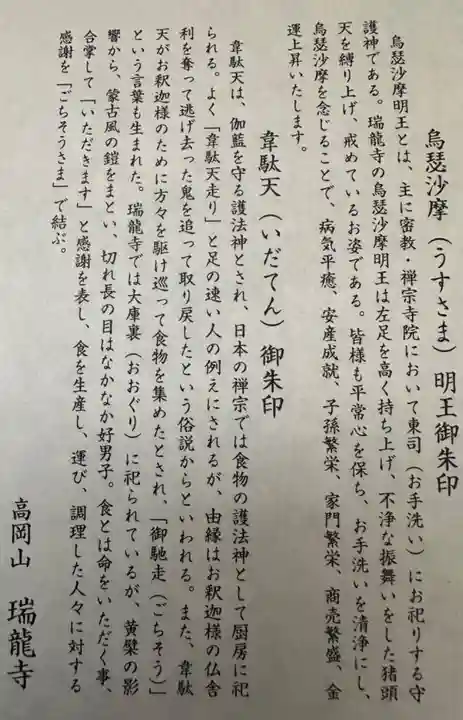 烏瑟沙摩（うすさま）明王御朱印
烏瑟沙摩明王とは、主に密教・禅宗寺院において東司（お手洗い）にお祀りする守
護神である。瑞龍寺の烏瑟沙摩明王は左足を高く持ち上げ、不浄な振舞いをした猪頭
天を縛り上げ、戒めているお姿である。皆様も平常心を保ち、お手洗いを清浄にし、
烏瑟沙摩を念じることで、病気平癒、安産成就、子孫繁栄、家門繁栄、商売繁盛、金
運上昇いたします。
韋駄天（いだてん）御朱印
韋駄天は、伽藍を守る護法神とされ、日本の禅宗では食物の護法神として厨房に祀
られる。よく「韋駄天走り」と足の速い人の例えにされるが、由縁はお釈迦様の仏舎
利を奪って逃げ去った鬼を追って取り戻したという俗説からといわれる。また、韋駄
天がお釈迦様のために方々を駆け巡って食物を集めたとされ、「御馳走（ごちそう）」
という言葉も生まれた。瑞龍寺では大庫裏（おおぐり）に祀られているが、黄檗の影
響から、蒙古風の鎧をまとい、切れ長の目はなかなか好男子。食とは命をいただく事、
合掌して「いただきます」と感謝を表し、食を生産し、運び、調理した人々に対する
感謝を「ごちそうさま」で結ぶ。
高岡山 瑞龍寺